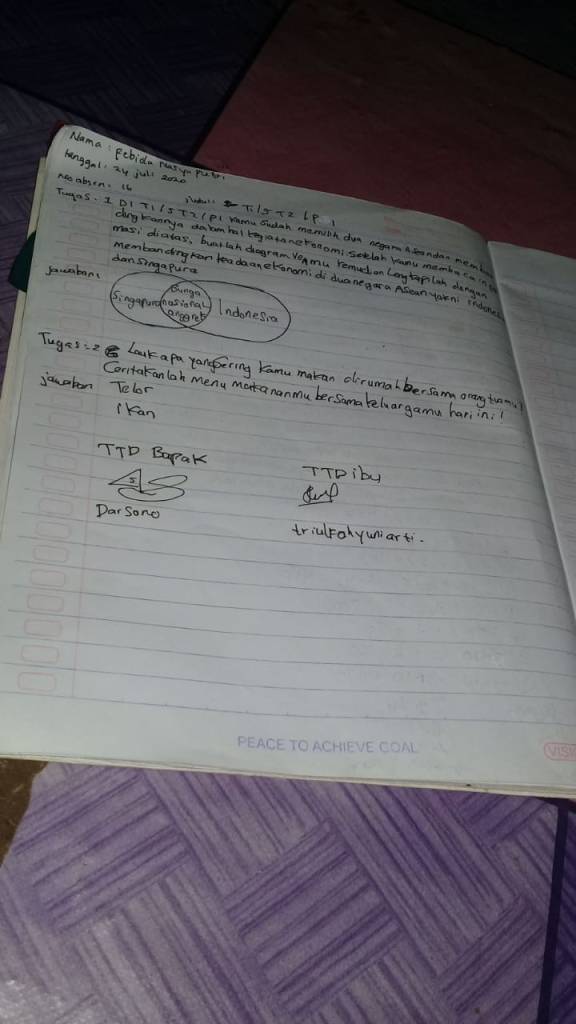 Nama : Febida Rasya Putri
tanggal : 24 juli 2020
No absen : 16
Judul : T1/S T2 /P1
Tugas : 1 Di T1/S T2/P1 kamu sudah memilih dua negara Asean dan memban
dingkannya dalam hal kegiatan ekonomi. Setelah kamu membaca infor
masi diatas, buatlah diagram Venmu kemudian Lengkapilah dengan
membandingkan keadaan ekonomi di dua negara Asean yakni Indones
dan Singapura
jawaban :
Singapura
Bunga
nasional
anggrek
Indonesia
Tugas : 2 Lauk apa yang sering kamu makan dirumah bersama orang tuamu?
Ceritakanlah menu makananmu bersama keluargamu hari ini!
jawaban Telor
ikan
TTD Bapak
TTD ibu
Darsono
PEACE TO ACHIEVE COAL